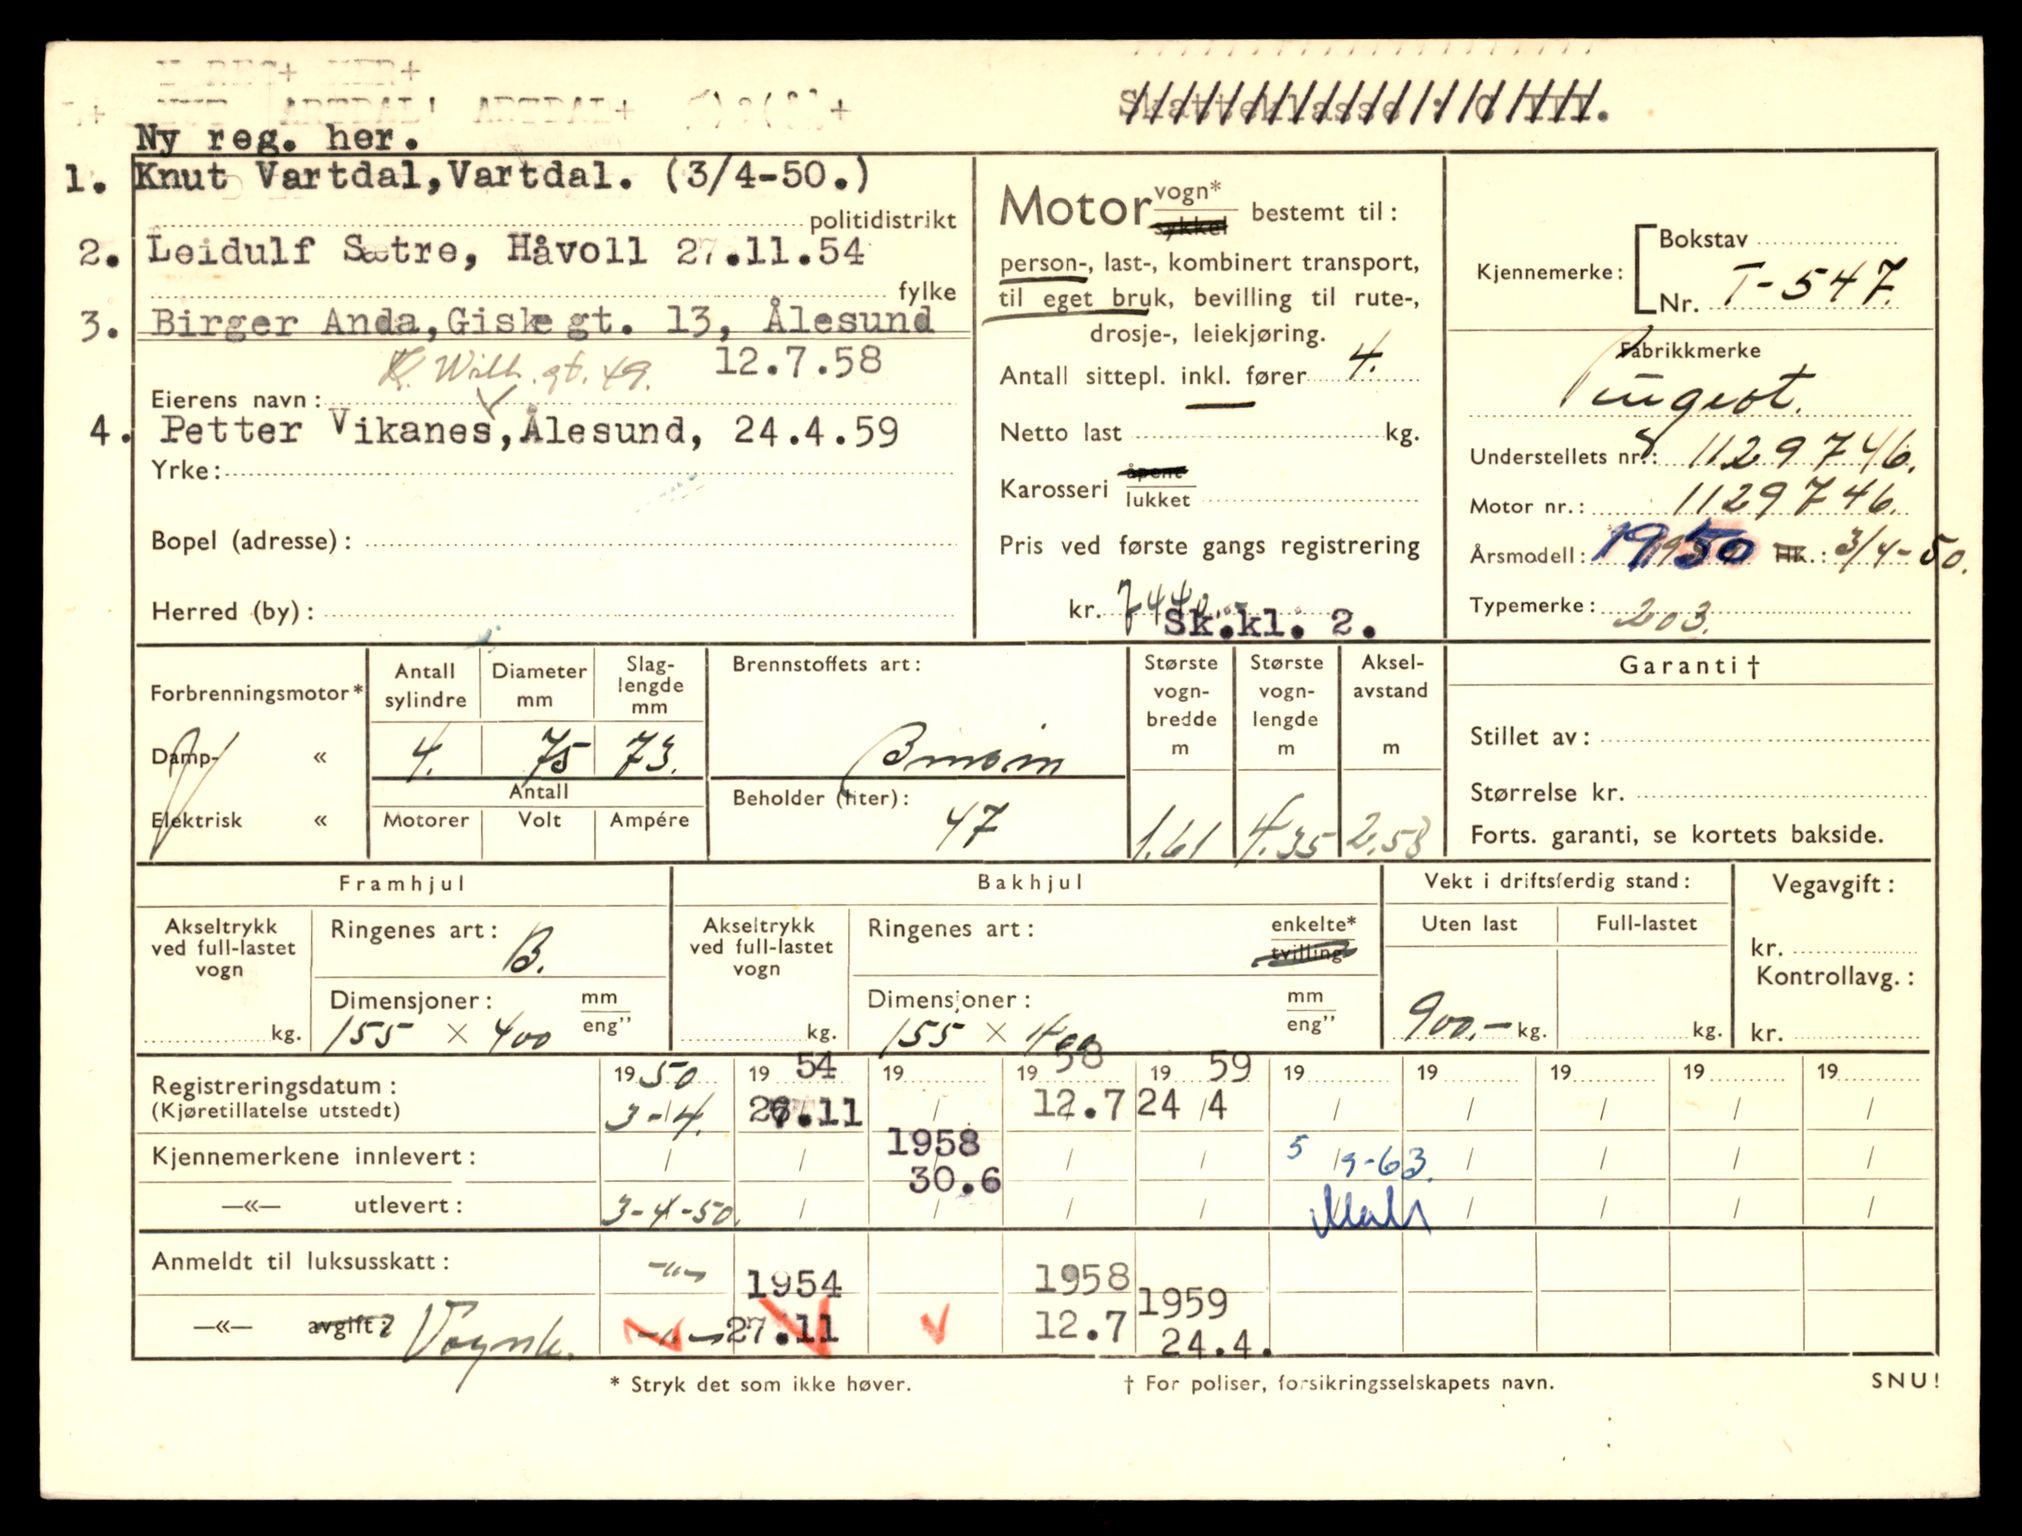 Ny reg. her.
1. Knut Vartdal, Vartdal. (3/4-50.)
politidistrikt
2. Leidulf Sætre, Håvoll 27.11.54
fylke
3. Birger Anda, Giske gt. 13, Ålesund
K. Wilh. gt. 49. 12.7.58
Eierens navn:
4. Petter Vikanes, Ålesund, 24.4.59
Yrke:
Bopel (adresse):
Herred (by):
Skatteklasse
Motor vogn* sykkel bestemt til:
person-, last-, kombinert transport,
til eget bruk, bevilling til rute-,
drosje-, leiekjøring.
Antall sittepl. inkl. fører 4.
Netto last kg.
Karosseri åpent lukket
Pris ved første gangs registrering
kr. 7440.-
Sk.kl. 2.
Kjennemerke: Bokstav
Nr. T-547.
Fabrikkmerke
Peugeot.
Understellets nr.: 1129746.
Motor nr.: 1129746.
Årsmodell: 1950 HK.: 3/4-50.
Typemerke: 203.
Forbrenningsmotor*
Damp- «
Elektrisk «
Antall sylindre
Diameter mm
Slag-lengde mm
4. 75 73.
Antall
Motorer Volt Ampére
Brennstoffets art:
Bensin
Beholder (liter):
47
Største vogn-bredde m
Største vogn-lengde m
Aksel-avstand m
1.61 4.35 2.58
Garanti †
Stillet av:
Størrelse kr.
Forts. garanti, se kortets bakside.
Framhjul
Akseltrykk ved full-lastet vogn
kg.
Ringenes art: B.
Dimensjoner: mm eng”
155 × 400
Bakhjul
Akseltrykk ved full-lastet vogn
kg.
Ringenes art: enkelte* tvilling
Dimensjoner: mm eng”
155 × 400
Vekt i driftsferdig stand:
Uten last Full-lastet
900.- kg. kg.
Vegavgift:
kr.
Kontrollavg.:
kr.
Registreringsdatum: 19 50 19 54 19 19 58 19 59 19 19 19 19 19
(Kjøretillatelse utstedt) 3-4. 27.11 / 12.7 24/4 / / / / /
Kjennemerkene innlevert: / / 1958 30.6 / / 5/9-63. / / / /
—«— utlevert: 3-4-50. / / / / / / / /
Anmeldt til luksusskatt: -"- 1954 1958 1959
—«— avgift: -"- 27.11 12.7 24.4.
* Stryk det som ikke høver.
† For poliser, forsikringsselskapets navn.
SNU!